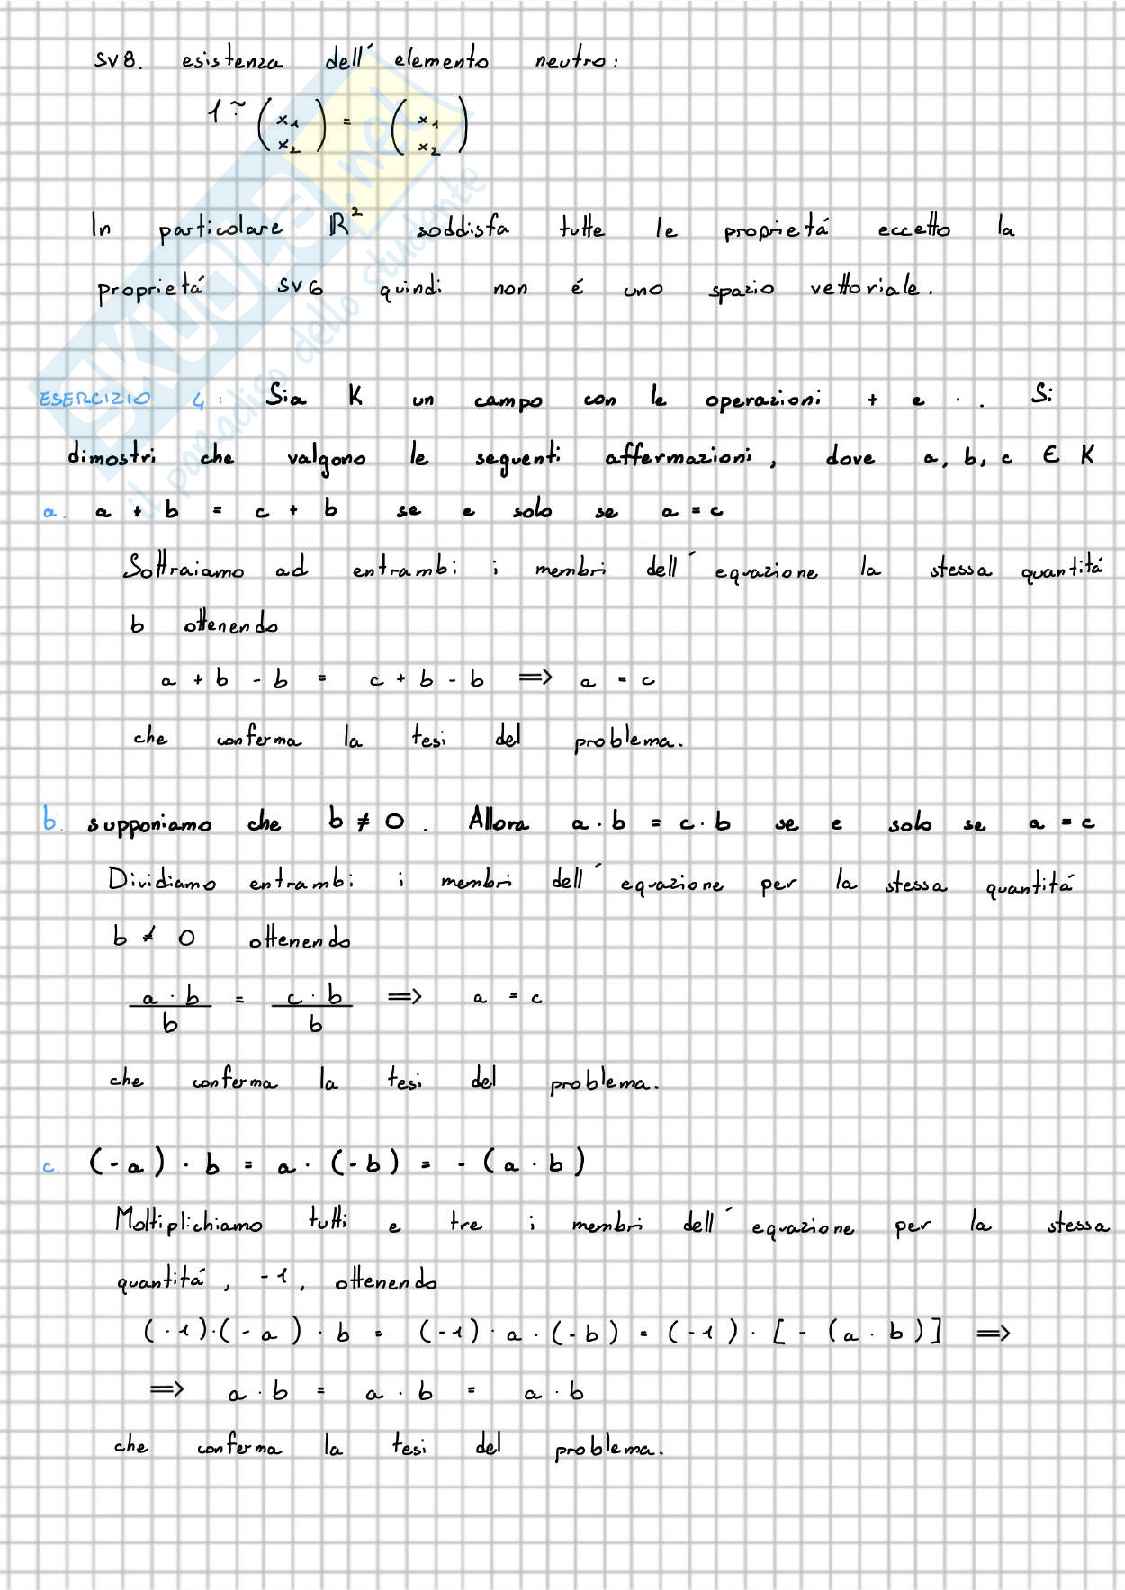 SV8. esistenza dell´ elemento neutro:
1 ~· (x₁ x₂) = (x₁ x₂)
In particolare ℝ² soddisfa tutte le proprietá eccetto la
proprietá SV6 quindi non é uno spazio vettoriale.
ESERCIZIO 4: Sia K un campo con le operazioni + e · . Si
dimostri che valgono le seguenti affermazioni, dove a, b, c ∈ K
a. a + b = c + b se e solo se a = c
Sottraiamo ad entrambi i membri dell´ equazione la stessa quantitá
b ottenendo
a + b - b = c + b - b ⟹ a = c
che conferma la tesi del problema.
b. supponiamo che b ≠ 0 . Allora a · b = c · b se e solo se a = c
Dividiamo entrambi i membri dell´ equazione per la stessa quantitá
b ≠ 0 ottenendo
a · b / b = c · b / b ⟹ a = c
che conferma la tesi del problema.
c (-a) · b = a · (-b) = - (a · b)
Moltiplichiamo tutti e tre i membri dell´ equazione per la stessa
quantitá, -1, ottenendo
(-1)·(-a) · b = (-1) · a · (-b) = (-1) · [- (a · b)] ⟹
⟹ a · b = a · b = a · b
che conferma la tesi del problema.
SKUOLA.net
il paradiso dello studente